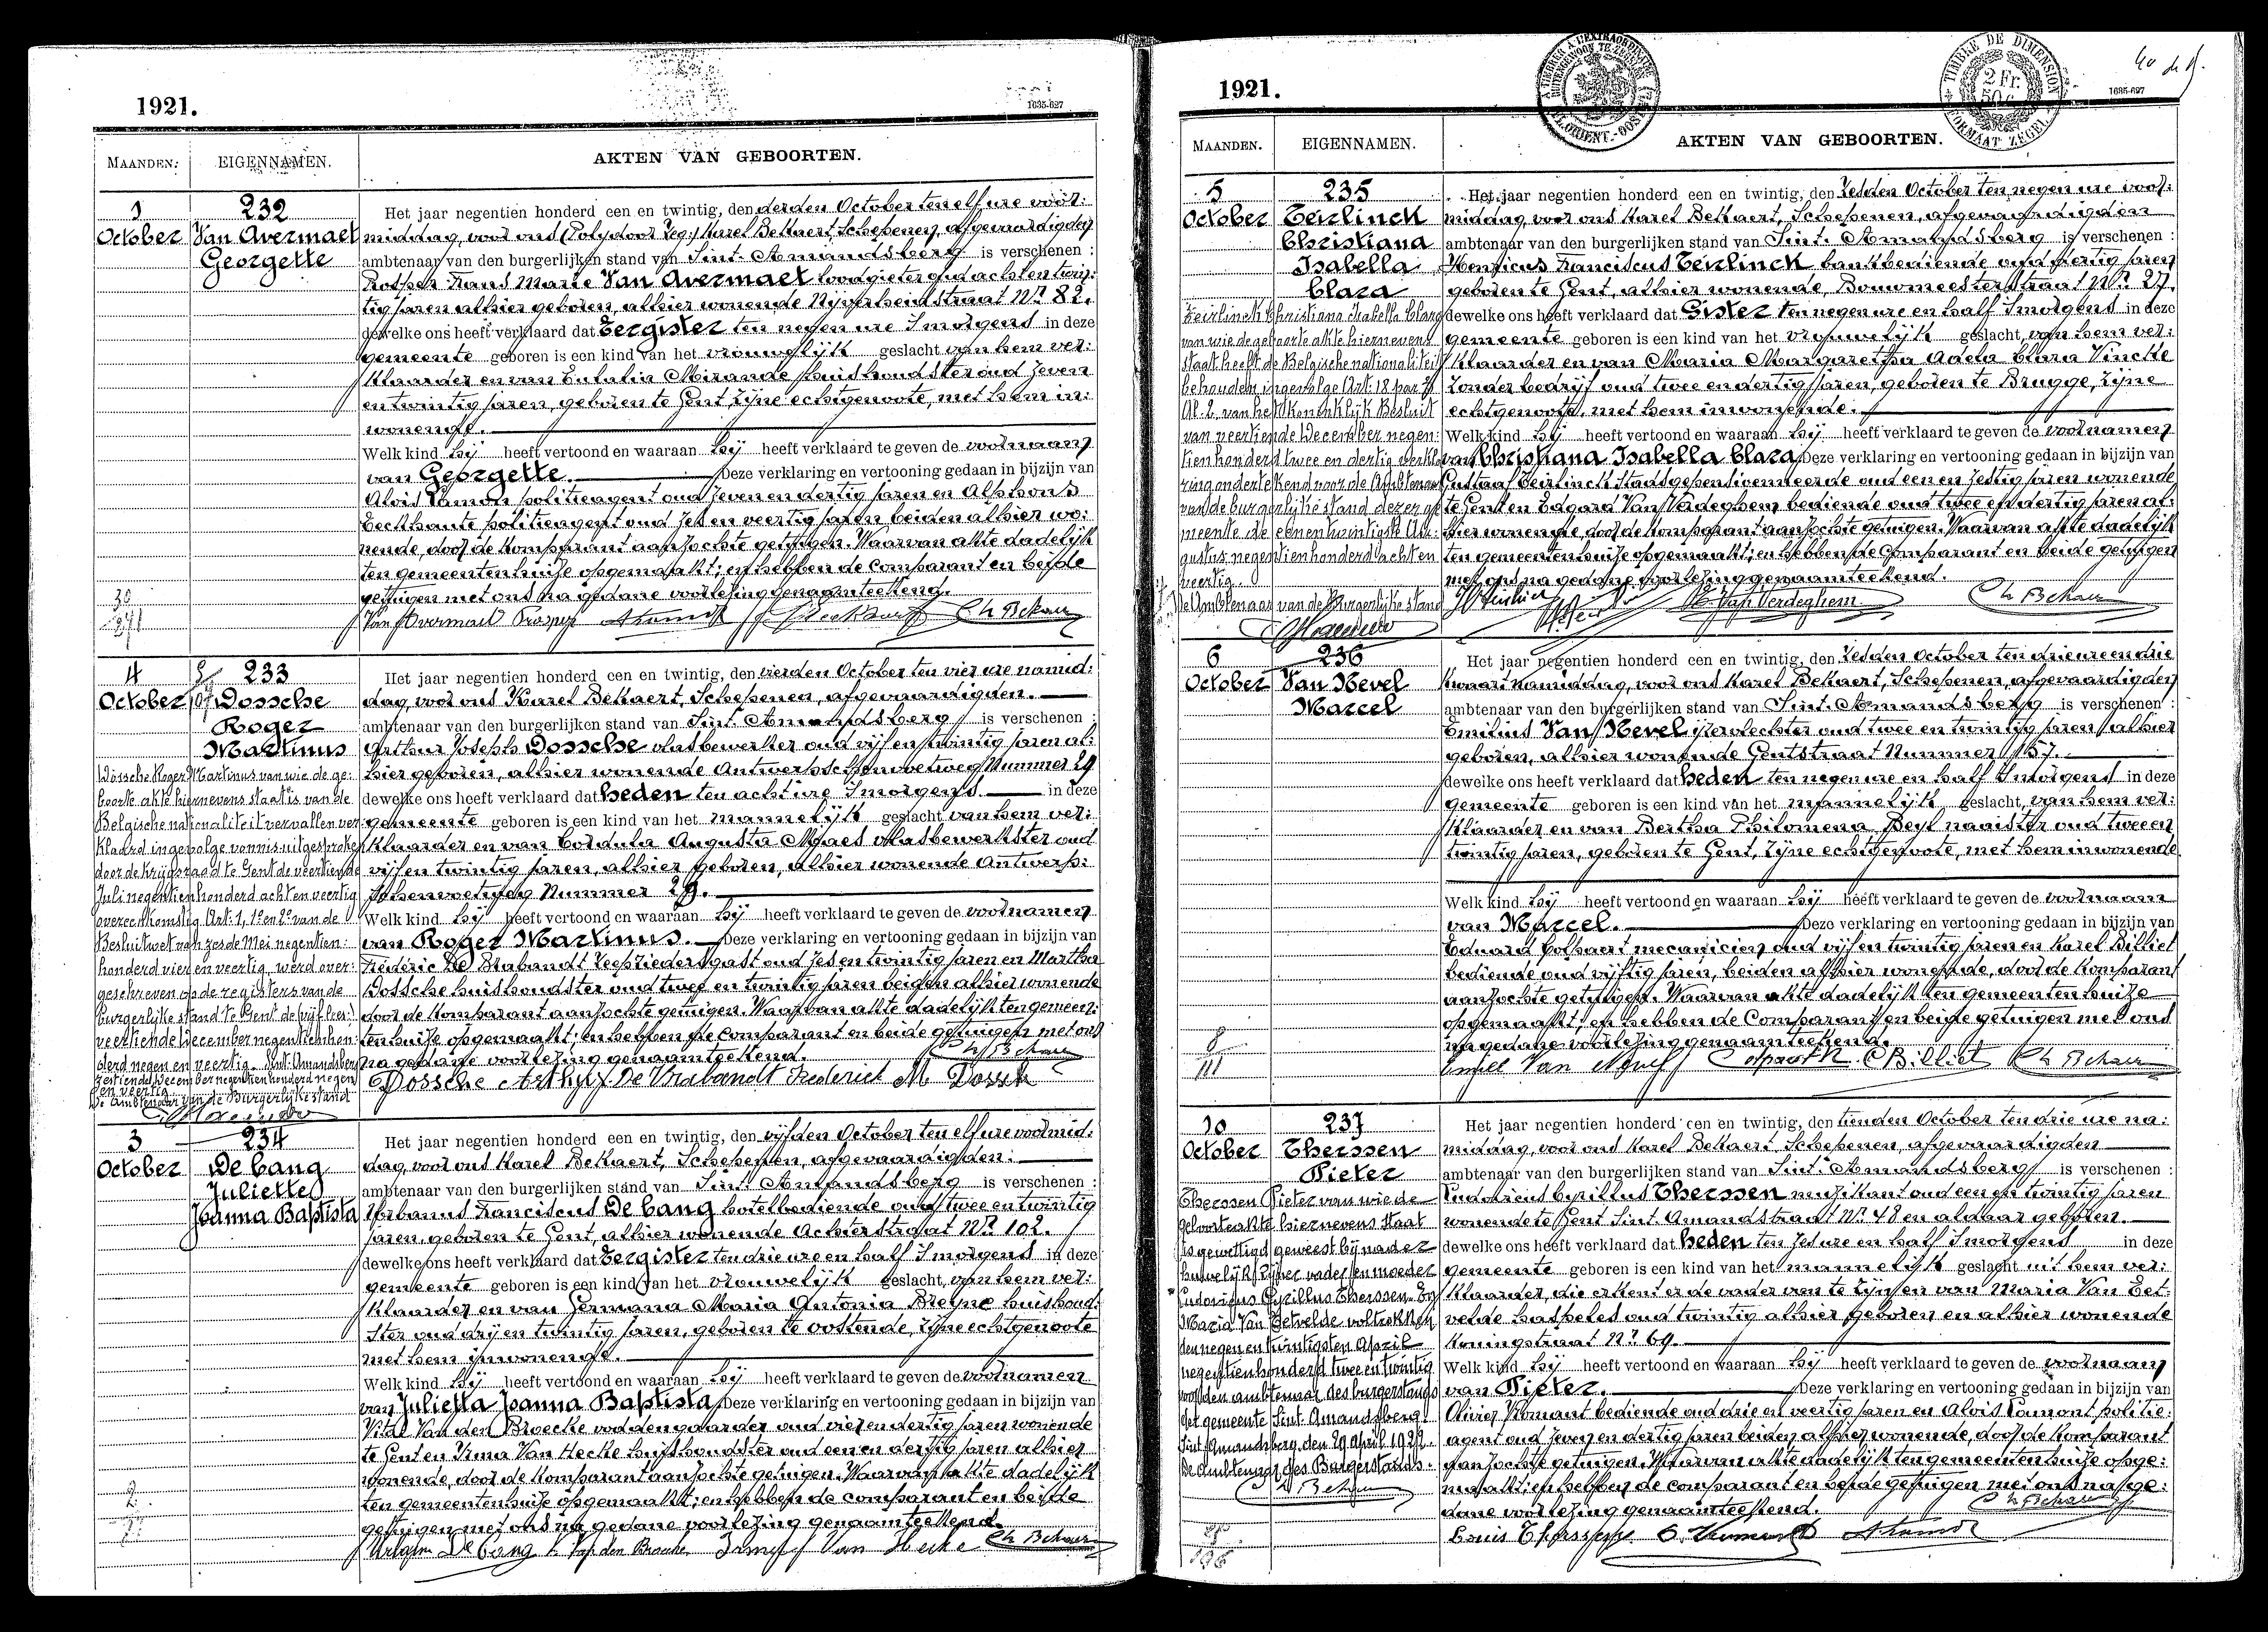 1921.
1635-627
MAANDEN.
EIGENNAMEN.
AKTEN VAN GEBOORTEN.
1
October
232
Van Avermaet
Georgette
Het jaar negentien honderd een en twintig, den derden October ten elf ure voor:
middag, voor ons (Polydoor Leg:) Karel Bekaert, Schepenen, afgevaardigden
ambtenaar van den burgerlijken stand van Sint-Amandsberg is verschenen :
Prosper Frans Marie Van Avermaet loodgieter oud acht en twin:
tig jaren alhier geboren, alhier wonende Nijverheidstraat Nr 82.
dewelke ons heeft verklaard dat Eergister ten negen ure 's morgens in deze
gemeente geboren is een kind van het vrouwelijk geslacht van hem ver:
klaarder en van Eulalia Mirande huishoudster oud zeven
en twintig jaren, geboren te Gent, zijne echtgenoote, met hem in:
wonende.
Welk kind hij heeft vertoond en waaraan hij heeft verklaard te geven de voornaam
van Georgette. Deze verklaring en vertooning gedaan in bijzijn van
Alois Lamont politieagent oud zeven en dertig jaren en Alphons
Eeckhaute politieagent oud zes en veertig jaren beiden alhier wo:
nende, door de komparant aanzochte getuigen. Waarvan akte dadelijk
ten gemeentenhuize opgemaakt; en hebben de Comparant en beide
getuigen met ons na gedane voorlezing genaamteekend.
Van Avermaet Prosper
4
October
233
Dossche
Roger
Martinus
Het jaar negentien honderd een en twintig, den vierden October ten vier ure namid:
dag, voor ons Karel Bekaert, Schepenen, afgevaardigden.
ambtenaar van den burgerlijken stand van Sint-Amandsberg is verschenen :
Arthur Joseph Dossche vlasbewerker oud vijf en twintig jaren al:
hier geboren, alhier wonende Antwerpschenvoetweg Nummer 29
dewelke ons heeft verklaard dat heden ten acht ure 's morgens in deze
gemeente geboren is een kind van het mannelijk geslacht van hem ver:
klaarder en van Cordula Augusta Maes vlasbewerkster oud
vijf en twintig jaren, alhier geboren, alhier wonende Antwerp:
schenvoetweg Nummer 29.
Welk kind hij heeft vertoond en waaraan hij heeft verklaard te geven de voornamen
van Roger Martinus. Deze verklaring en vertooning gedaan in bijzijn van
Frédéric De Brabandt zeepziedersgast oud zes en twintig jaren en Martha
Dossche huishoudster oud twee en twintig jaren beiden alhier wonende
door de komparant aanzochte getuigen. Waarvan akte dadelijk ten gemeen:
tenhuize opgemaakt; en hebben de Comparant en beide getuigen met ons
na gedane voorlezing genaamteekend.
Dossche Arthur De Brabandt Frederick M. Dossch
Dossche Roger Martinus van wie de ge:
boorte akte hiernevens staat is van de
Belgische nationaliteit vervallen ver:
klaard ingevolge vonnis uitgesproken
door de krijgsraad te Gent de veertiende
Juli negentien honderd acht en veertig
overeenkomstig Art: 1, 1° en 2° van de
Besluitwet van zesde Mei negentien:
honderd vier en veertig, werd over:
geschreven op de registers van de
burgerlijke stand te Gent de vijftien:
veertiende December negentienhon:
derd negen en veertig. Sint-Amandsberg
zestiende December negentien honderd negen
en veertig.
De Ambtenaar van de Burgerlijke stand
3
October
234
De Cang
Juliette
Joanna Baptista
Het jaar negentien honderd een en twintig, den vijfden October ten elf ure voormid:
dag, voor ons Karel Bekaert, Schepenen, afgevaardigden:
ambtenaar van den burgerlijken stand van Sint-Amandsberg is verschenen :
Urbanus Franciscus De Cang hotelbediende oud twee en twintig
jaren, geboren te Gent, alhier wonende Achterstraat Nr 102.
dewelke ons heeft verklaard dat Eergister ten drie ure en half 's morgens in deze
gemeente geboren is een kind van het vrouwelijk geslacht, van hem ver:
klaarder en van Germana Maria Antonia Breyne huishoud:
ster oud drij en twintig jaren, geboren te Oostende, zijne echtgenoote
met hem inwonende.
Welk kind hij heeft vertoond en waaraan hij heeft verklaard te geven de voornamen
van Julietta Joanna Baptista Deze verklaring en vertooning gedaan in bijzijn van
Vital Van den Broecke voddengaarder oud vier en dertig jaren wonende
te Gent en Irma Van Hecke huishoudster oud een en dertig jaren alhier
wonende, door de komparant aanzochte getuigen. Waarvan akte dadelijk
ten gemeentenhuize opgemaakt; en hebben de comparant en beide
getuigen met ons na gedane voorlezing genaamteekend.
1921.
1635-627
TIMBRE DE DIMENSION
2 Fr.
FORMAAT ZEGEL
MAANDEN.
EIGENNAMEN.
AKTEN VAN GEBOORTEN.
5
October
235
Teirlinck
Christiana
Isabella
Clara
Het jaar negentien honderd een en twintig, den zesden October ten negen ure voor:
middag, voor ons Karel Bekaert, Schepenen, afgevaardigden
ambtenaar van den burgerlijken stand van Sint-Amandsberg is verschenen :
Henricus Franciscus Teirlinck bankbediende oud dertig jaren
geboren te Gent, alhier wonende, Bouwmeesterstraat Nr 27.
dewelke ons heeft verklaard dat Gister ten negen ure en half 's morgens in deze
gemeente geboren is een kind van het vrouwelijk geslacht, van hem ver:
klaarder en van Maria Margaretha Adela Clara Vincke
zonder bedrijf oud twee en dertig jaren, geboren te Brugge, zijne
echtgenoote, met hem inwonende.
Welk kind hij heeft vertoond en waaraan hij heeft verklaard te geven de voornamen
van Christiana Isabella Clara, Deze verklaring en vertooning gedaan in bijzijn van
Gustaaf Teirlinck Stadsgepensioenneerde oud een en zestig jaren wonende
te Gent en Edgard Van Verdeghem bediende oud twee en dertig jaren al:
hier wonende door de komparant aanzochte getuigen. Waarvan akte dadelijk
ten gemeentenhuize opgemaakt; en hebben de Comparant en beide getuigen
met ons na gedane voorlezing genaamteekend.
Teirlinck Christiana Isabella Clara
van wie de geboorte akte hiernevens
staat heeft de Belgische nationaliteit
behouden ingevolge Art. 18 par. 2
Al. 2 van het Koninklijk Besluit
van veertiende December negen:
tien honderd twee en dertig verkla:
ring onderteekend voor de Ambtenaar
van de burgerlijke stand dezer ge:
meente de een en twintigste Au:
gustus negentienhonderd acht en
veertig.
De Ambtenaar van de Burgerlijke stand
6
October
236
Van Nevel
Marcel
Het jaar negentien honderd een en twintig, den zesden October ten drie ure en drie
kwaart namiddag, voor ons Karel Bekaert, Schepenen, afgevaardigden
ambtenaar van den burgerlijken stand van Sint-Amandsberg is verschenen :
Emilius Van Nevel ijzervlechter oud twee en twintig jaren alhier
geboren, alhier wonende Gentstraat Nummer 157.
dewelke ons heeft verklaard dat heden ten negen ure en half 's morgens in deze
gemeente geboren is een kind van het mannelijk geslacht, van hem ver:
klaarder en van Bertha Philomena Beyl naaister oud twee en
twintig jaren, geboren te Gent, zijne echtgenoote, met hem inwonende
Welk kind hij heeft vertoond en waaraan hij heeft verklaard te geven de voornaam
van Marcel. Deze verklaring en vertooning gedaan in bijzijn van
Eduard Colpaert mecanicien oud vijf en twintig jaren en Karel Billiet
bediende oud vijftig jaren, beiden alhier wonende, door de komparant
aanzochte getuigen. Waarvan akte dadelijk ten gemeentenhuize
opgemaakt; en hebben de Comparant en beide getuigen met ons
na gedane voorlezing genaamteekend.
10
October
237
Therssen
Pieter
Het jaar negentien honderd een en twintig, den tienden October ten drie ure na:
middag, voor ons Karel Bekaert, Schepenen, afgevaardigden
ambtenaar van den burgerlijken stand van Sint-Amandsberg is verschenen :
Ludovicus Cyrillus Therssen muzikant oud een en twintig jaren
wonende te Gent Sint Amandstraat Nr 48 en aldaar geboren.
dewelke ons heeft verklaard dat heden ten zes ure en half 's morgens in deze
gemeente geboren is een kind van het mannelijk geslacht uit hem ver:
klaarder, die erkent er de vader van te zijn en van Maria Van Eet:
velde haspeles oud twintig alhier geboren en alhier wonende
Koningstraat Nr 69.
Welk kind hij heeft vertoond en waaraan hij heeft verklaard te geven de voornaam
van Pieter. Deze verklaring en vertooning gedaan in bijzijn van
Olivier Komant bediende oud drie en veertig jaren en Alois Lamont politie:
agent oud zeven en dertig jaren beiden alhier wonende, door de komparant
aanzochte getuigen. Waarvan akte dadelijk ten gemeentenhuize opge:
maakt; en hebben de comparant en beide getuigen met ons na ge:
dane voorlezing genaamteekend.
Therssen Pieter van wie de
geboorteakte hiernevens staat
is gewettigd geweest bij nader
huwelijk zijner vader en moeder
Ludovicus Cyrillus Therssen En
Maria Van Eetvelde voltrokken
den negen en twintigsten April
negentienhonderd twee en twintig
voor den ambtenaar des burgerstands
der gemeente Sint-Amandsberg.
Sint-Amandsberg, den 29 April 1922.
De Ambtenaar des Burgerstands.